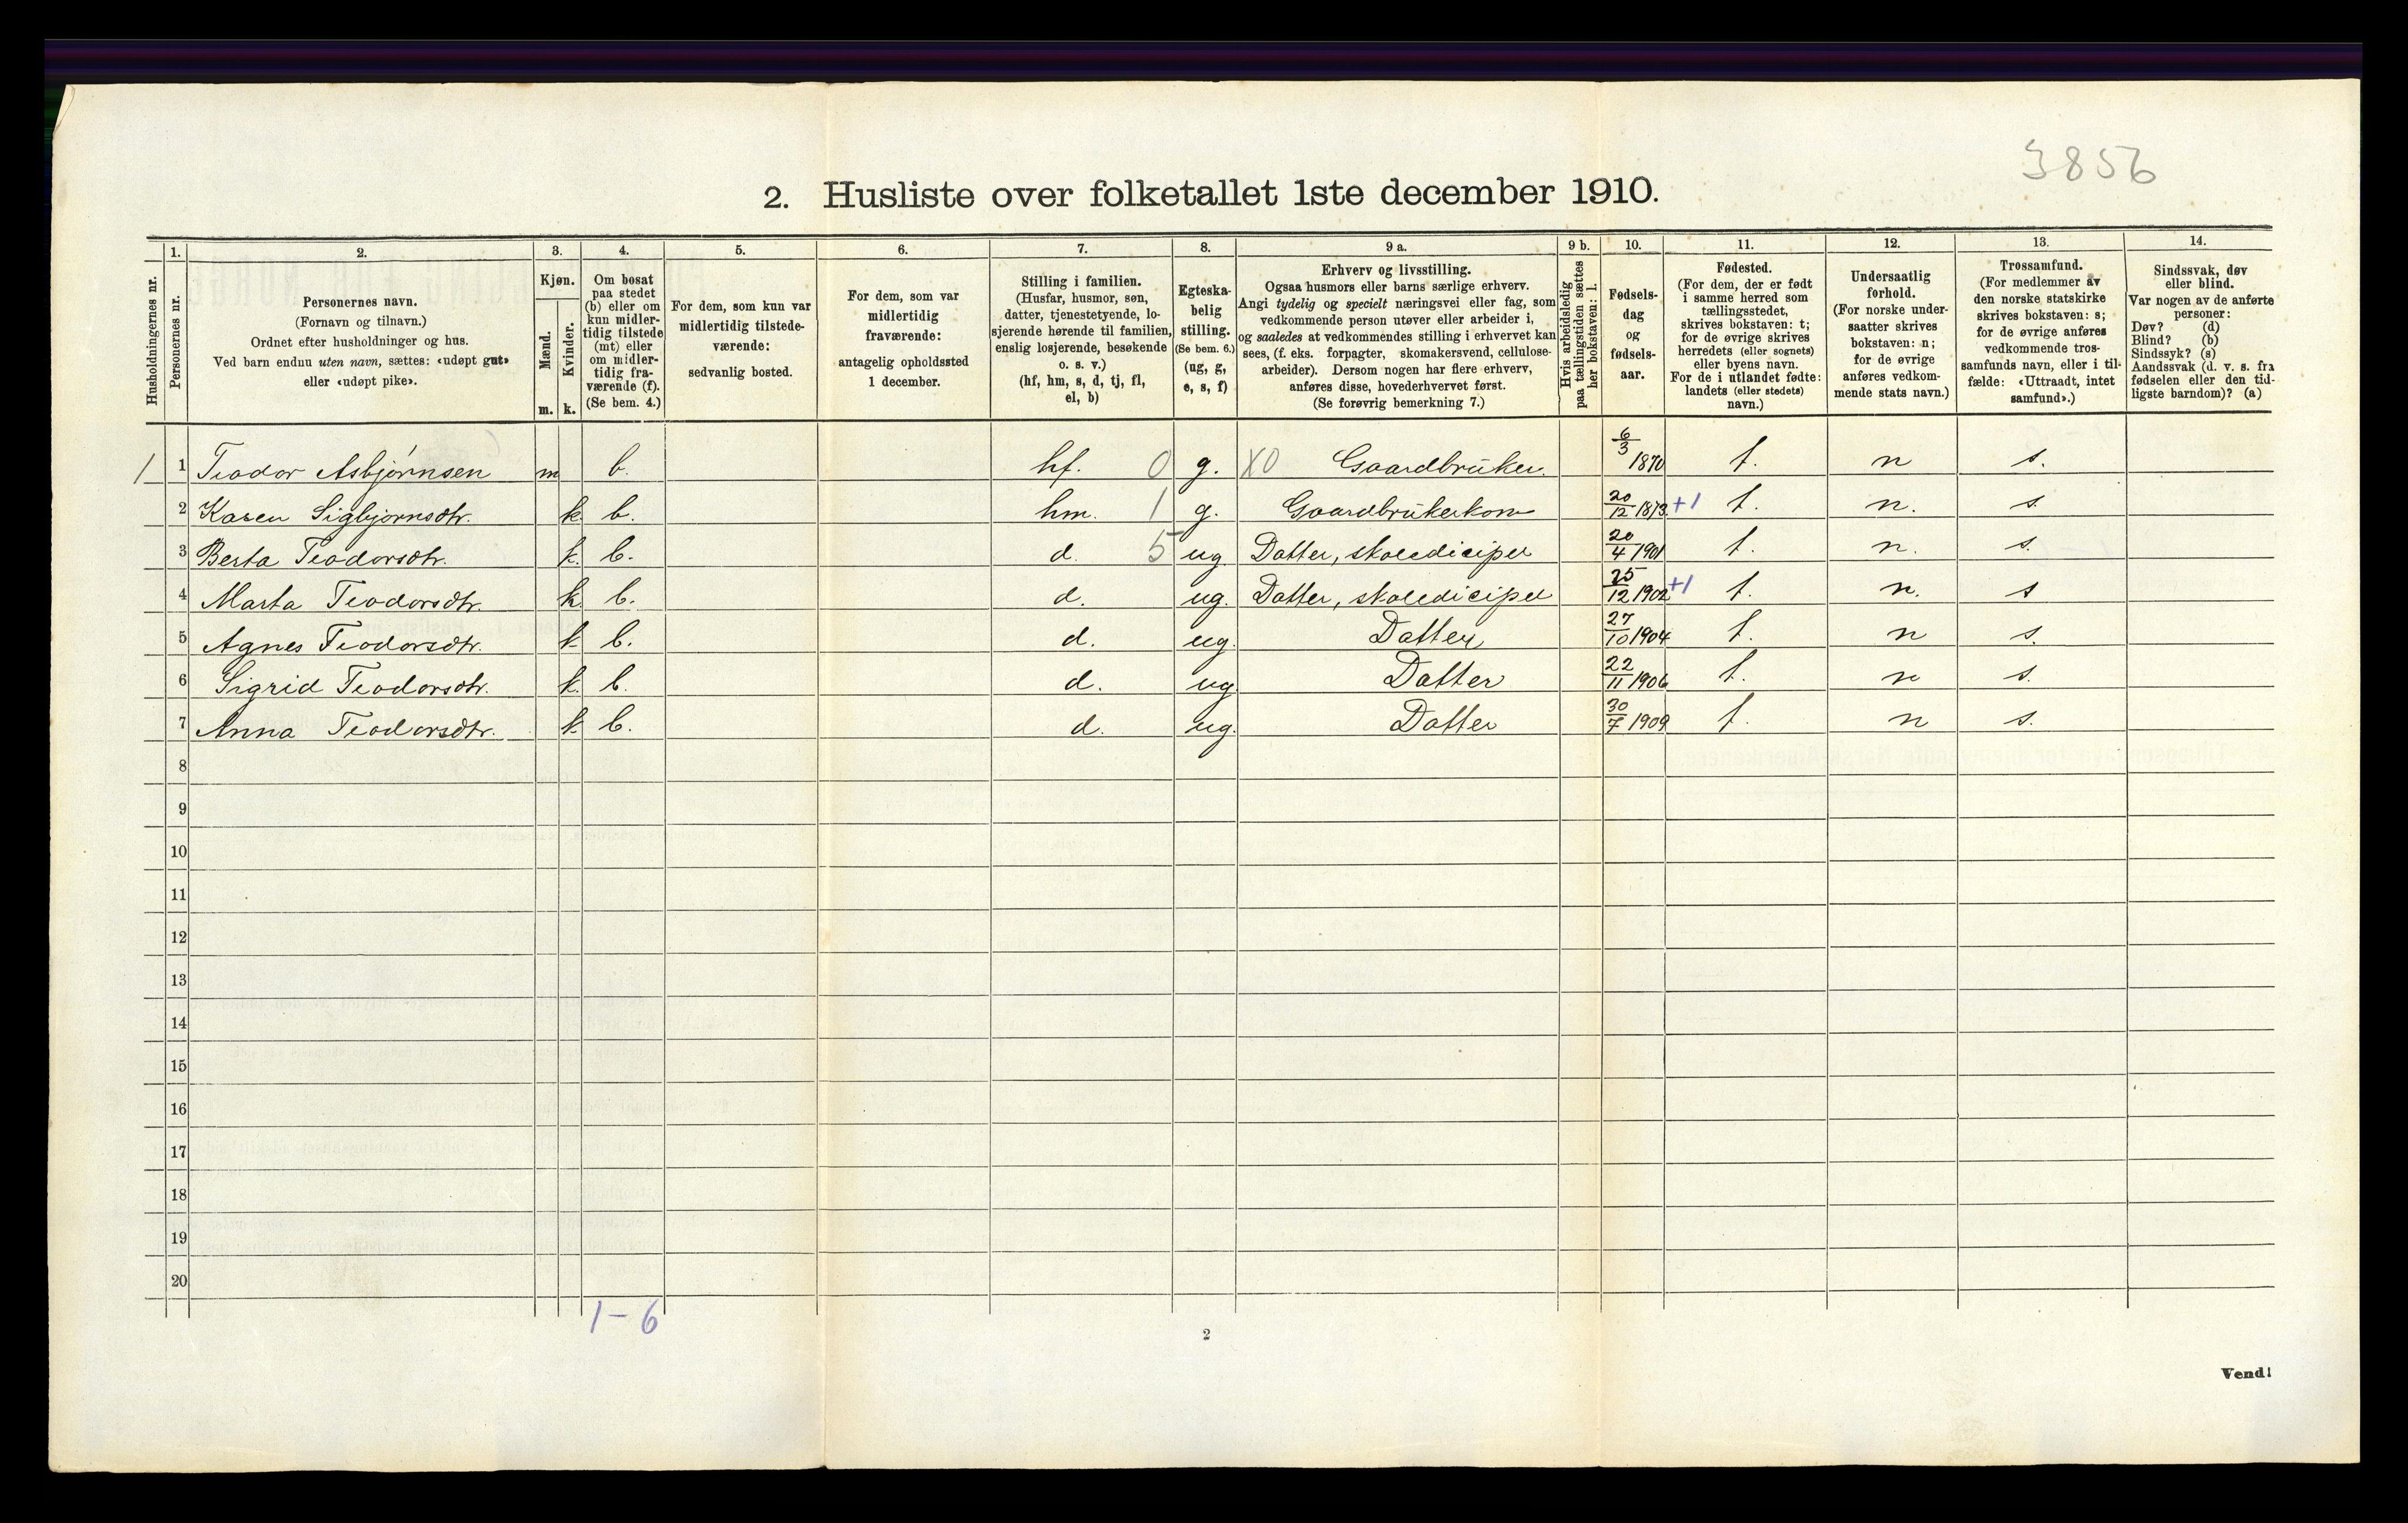 3856
2. Husliste over folketallet 1ste december 1910.
Husholdningernes nr.
1.
Personernes nr.
2.
Personernes navn.
(Fornavn og tilnavn.)
Ordnet efter husholdninger og hus.
Ved barn endnu uten navn, sættes: «udøpt gut»
eller «udøpt pike».
3.
Kjøn.
Mænd.
m.
Kvinder.
k.
4.
Om bosat
paa stedet
(b) eller om
kun midler-
tidig tilstede
(mt) eller
om midler-
tidig fra-
værende (f).
(Se bem. 4.)
5.
For dem, som kun var
midlertidig tilstede-
værende:
sedvanlig bosted.
6.
For dem, som var
midlertidig
fraværende:
antagelig opholdssted
1 december.
7.
Stilling i familien.
(Husfar, husmor, søn,
datter, tjenestetyende, lo-
sjerende hørende til familien,
enslig losjerende, besøkende
o. s. v.)
(hf, hm, s, d, tj, fl,
el, b)
8.
Egteska-
belig
stilling.
(Se bem. 6.)
(ug, g,
e, s, f)
9 a.
Erhverv og livsstilling.
Ogsaa husmors eller barns særlige erhverv.
Angi tydelig og specielt næringsvei eller fag, som
vedkommende person utøver eller arbeider i,
og saaledes at vedkommendes stilling i erhvervet kan
sees, (f. eks. forpagter, skomakersvend, cellulose-
arbeider). Dersom nogen har flere erhverv,
anføres disse, hovederhvervet først.
(Se forøvrig bemerkning 7.)
9 b.
Hvis arbeidsledig
paa tællingstiden sættes
her bokstaven: l.
10.
Fødsels-
dag
og
fødsels-
aar.
11.
Fødested.
(For dem, der er født
i samme herred som
tællingsstedet,
skrives bokstaven: t;
for de øvrige skrives
herredets (eller sognets)
eller byens navn.
For de i utlandet fødte:
landets (eller stedets)
navn.)
12.
Undersaatlig
forhold.
(For norske under-
saatter skrives
bokstaven: n;
for de øvrige
anføres vedkom-
mende stats navn.)
13.
Trossamfund.
(For medlemmer av
den norske statskirke
skrives bokstaven: s;
for de øvrige anføres
vedkommende tros-
samfunds navn, eller i til-
fælde: «Uttraadt, intet
samfund».)
14.
Sindssvak, døv
eller blind.
Var nogen av de anførte
personer:
Døv? (d)
Blind? (b)
Sindssyk? (s)
Aandssvak (d. v. s. fra
fødselen eller den tid-
ligste barndom)? (a)
1 1 Teodor Asbjørnsen m b. hf. 0 g. X0 Gaardbruker. 6/3 1870 t. n s.
2 Karen Sigbjørnsdtr. k. b. hm. 1 g. Gaardbrukerkone 20/12 1873 +1 t. n. s.
3 Berta Teodorsdtr. k. b. d. 5 ug. Datter, skoledicipel 20/4 1901 t. n. s.
4 Marta Teodorsdtr. k. b. d. ug. Datter, skoledicipel 25/12 1902 +1 t. n. s
5 Agnes Teodorsdtr. k. b. d. ug. Datter 27/10 1904 t. n s.
6 Sigrid Teodorsdtr. k. b. d. ug Datter 22/11 1906 t. n s.
7 Anna Teodorsdtr. k. b. d. ug. Datter 30/7 1909 t. n s.
8
9
10
11
12
13
14
15
16
17
18
19
20
1-6
2
Vend!